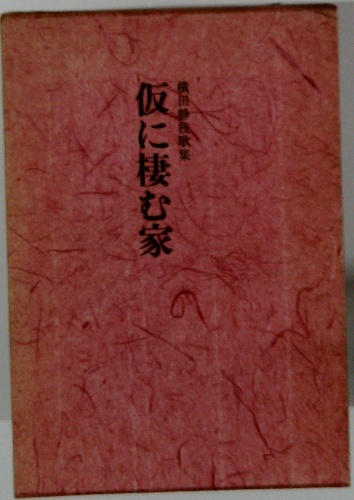 横田静枝歌集
仮に棲む家